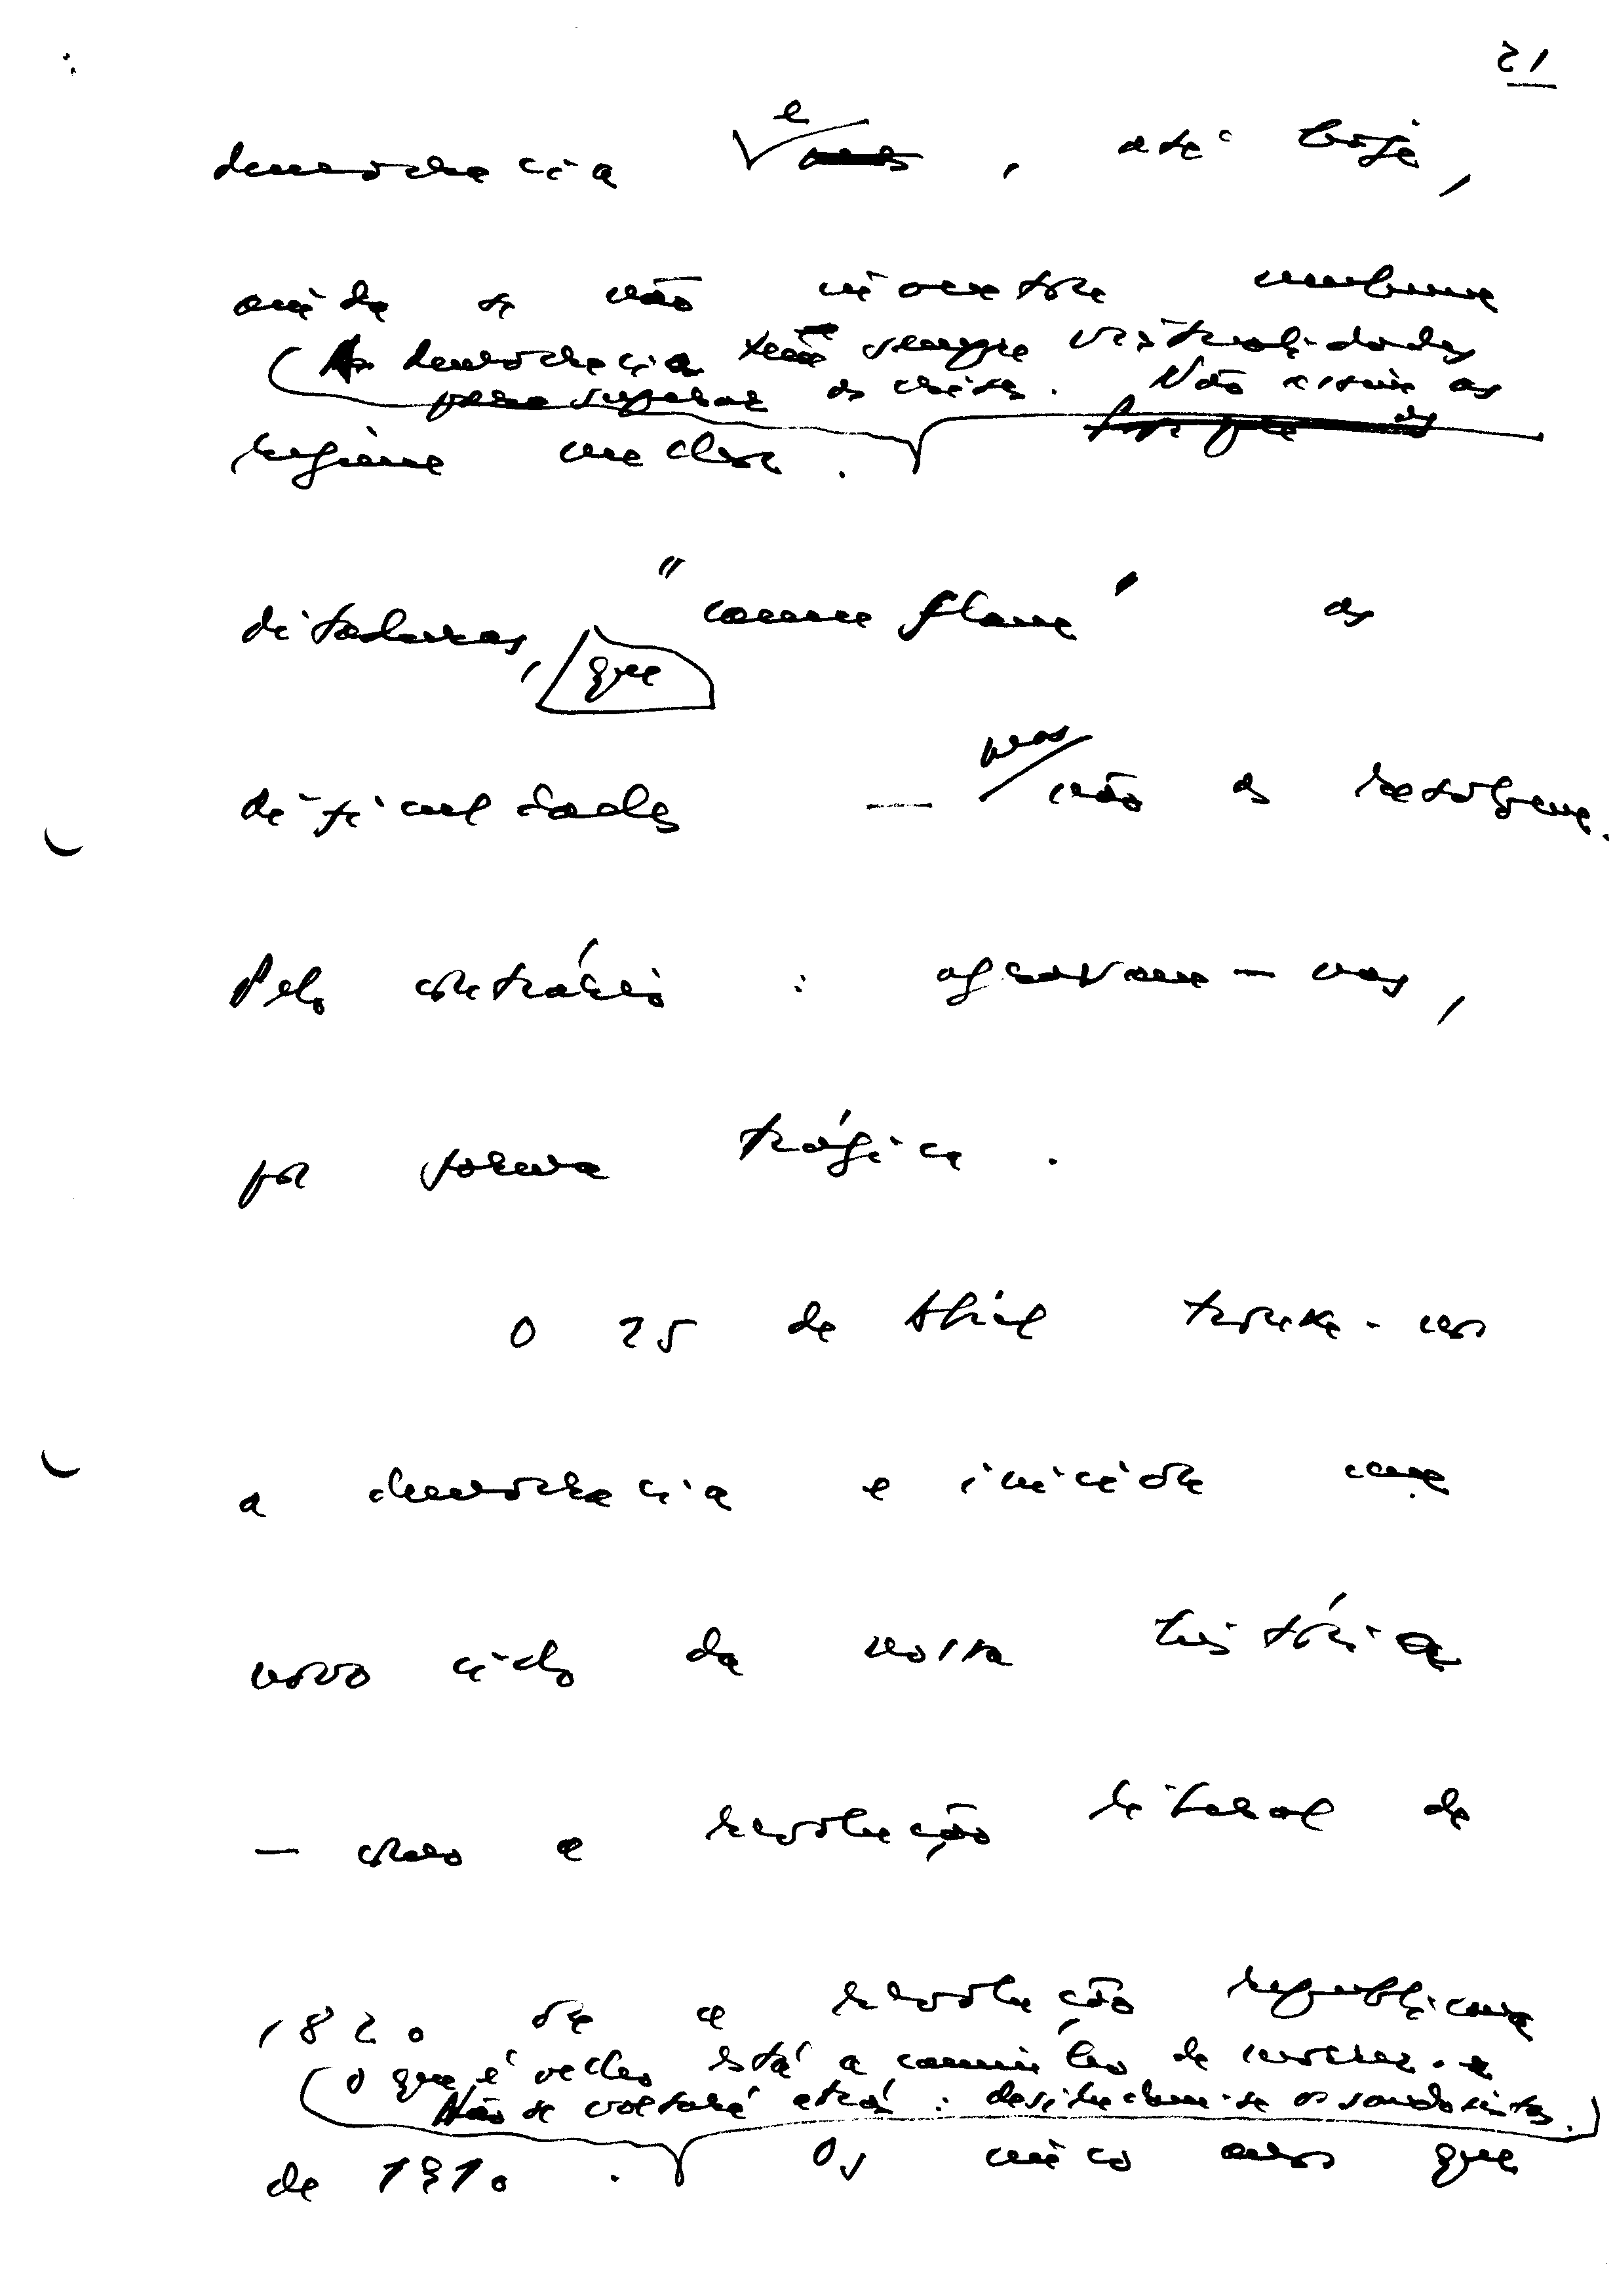 21
democracia e, até hoje,
ainda se não inventou nenhum
A democracia tem sempre virtualidades
para superar as crises. Não assim as
regime melhor.
ditaduras, que "camuflam" as
dificuldades — mas não as resolvem.
Pelo contrário: agravam-nas,
por forma trágica.
O 25 de Abril trouxe-nos
a democracia e iniciou um
novo ciclo da nossa história
— como a revolução liberal de
1820 ou a revolução republicana
O que é velho está a caminho de morrer.
Não se voltará atrás: desiludam-se os saudosistas.
de 1910. Os cinco anos que